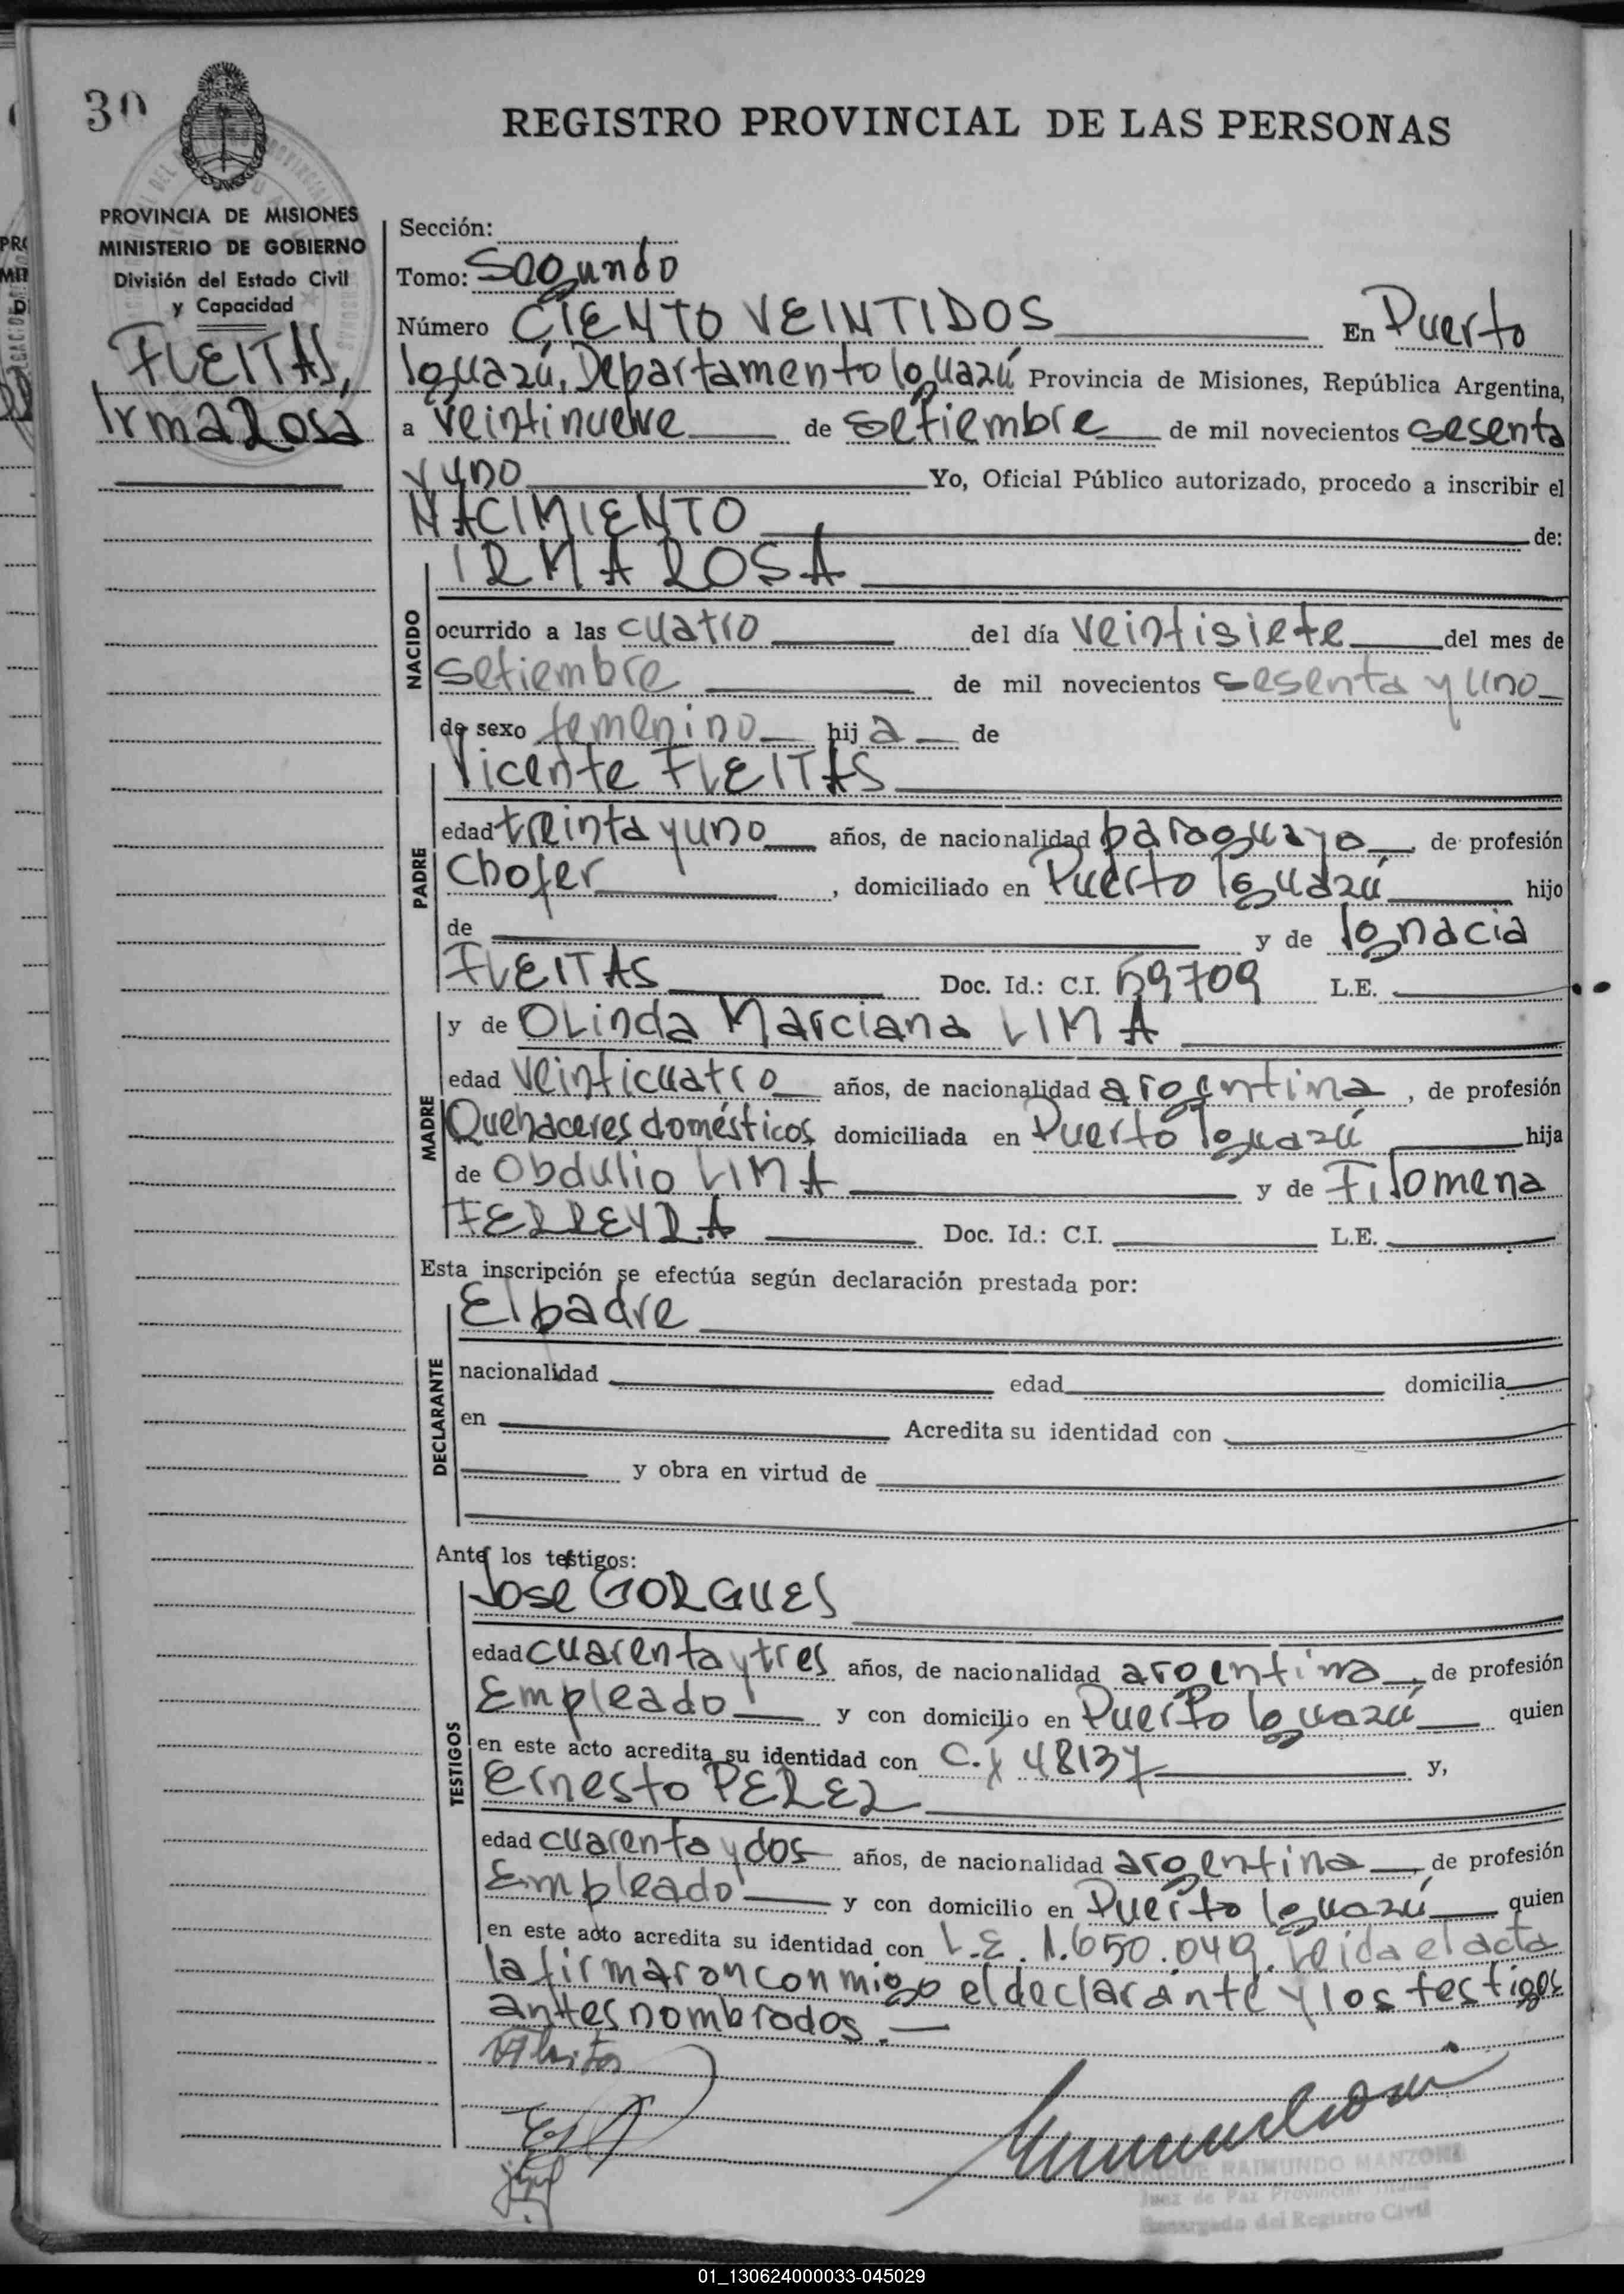 30
REGISTRO PROVINCIAL DE LAS PERSONAS
PROVINCIA DE MISIONES
MINISTERIO DE GOBIERNO
División del Estado Civil
y Capacidad
FLEITAS,
Irma Rosa
Sección:
Tomo: Segundo
Número CIENTO VEINTIDOS En Puerto
Iguazú, Departamento Iguazú Provincia de Misiones, República Argentina,
a veintinueve de setiembre de mil novecientos sesenta
y uno Yo, Oficial Público autorizado, procedo a inscribir el
NACIMIENTO de:
IRMA ROSA
NACIDO
ocurrido a las cuatro del día veintisiete del mes de
setiembre de mil novecientos sesenta y uno
de sexo femenino hija de
Vicente FLEITAS
PADRE
edad treinta y uno años, de nacionalidad paraguaya, de profesión
Chofer, domiciliado en Puerto Iguazú hijo
de y de Ignacia
FLEITAS Doc. Id.: C.I. 59709 L.E.
y de OLinda Marciana LIMA
MADRE
edad veinticuatro años, de nacionalidad argentina, de profesión
Quehaceres domésticos domiciliada en Puerto Iguazú hija
de Obdulio LIMA y de Filomena
FERREYRA Doc. Id.: C.I. L.E.
Esta inscripción se efectúa según declaración prestada por:
El padre
DECLARANTE
nacionalidad edad domicilia
en Acredita su identidad con
y obra en virtud de
Ante los testigos:
Jose GORGUES
TESTIGOS
edad cuarenta y tres años, de nacionalidad argentina, de profesión
Empleado y con domicilio en Puerto Iguazú quien
en este acto acredita su identidad con C.I 48137 y,
Ernesto PEREZ
edad cuarenta y dos años, de nacionalidad argentina, de profesión
Empleado y con domicilio en Puerto Iguazú quien
en este acto acredita su identidad con L.E. 1.650.049. Leida el acta
la firmaron conmigo el declarante y los testigos
antes nombrados.
ENRIQUE RAIMUNDO MANZONI
Juez de Paz Provincial Titular
Encargado del Registro Civil
01_130624000033-045029